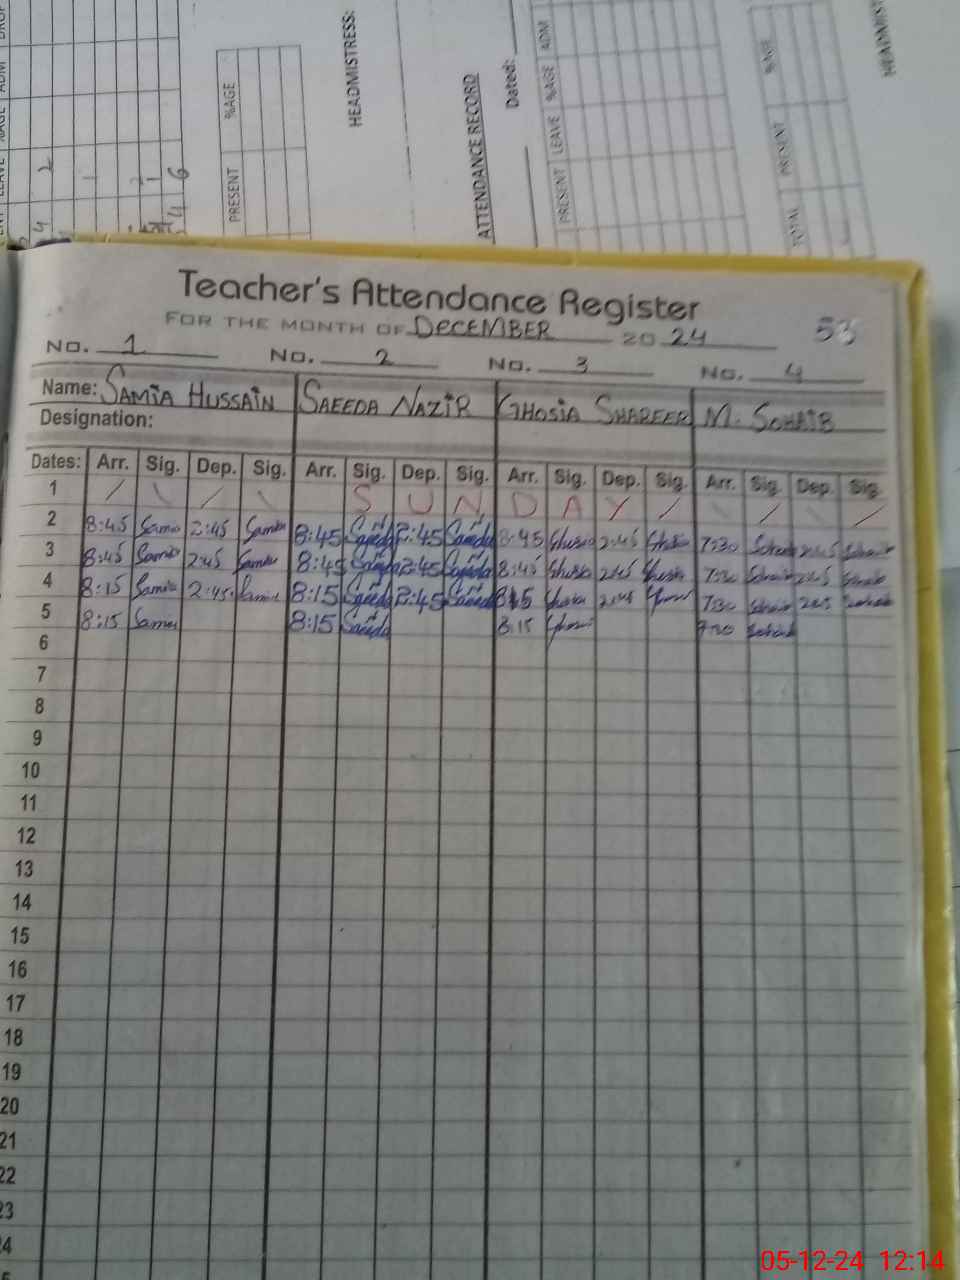 DROP
LEAVE %AGE ADM
2
1
4
6
PRESENT %AGE
HEADMISTRESS:
ATTENDANCE RECORD
Dated:
PRESENT LEAVE %AGE ADM
TOTAL PRESENT %AGE
Teacher's Attendance Register
FOR THE MONTH OF DECEMBER 20 24 53
NO. 1 NO. 2 NO. 3 NO. 4
Name: SAMIA HUSSAIN SAEEDA NAZIR GHOSIA SHAREER M. SOHAIB
Designation:
Dates: Arr. Sig. Dep. Sig. Arr. Sig. Dep. Sig. Arr. Sig. Dep. Sig. Arr. Sig. Dep. Sig.
1 / \ / \ S U N D A Y / \ / \ /
2 8:45 Samia 2:45 Samia 8:45 Saeeda 2:45 Saeeda 8:45 Ghosia 2:45 Ghosia 7:30 Sohaib 2:45 Sohaib
3 8:45 Samia 2:45 Samia 8:45 Saeeda 2:45 Saeeda 8:45 Ghosia 2:45 Ghosia 7:30 Sohaib 2:45 Sohaib
4 8:15 Samia 2:45 Samia 8:15 Saeeda 2:45 Saeeda 8:15 Ghosia 2:45 Ghosia 7:30 Sohaib 2:45 Sohaib
5 8:15 Samia 8:15 Saeeda 8:15 Ghosia 7:30 Sohaib
6
7
8
9
10
11
12
13
14
15
16
17
18
19
20
21
22
23
24
05-12-24 12:14